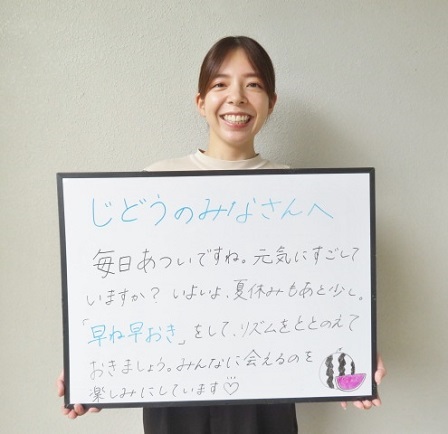 じどうのみなさんへ
毎日あついですね。元気にすごして
いますか？いよいよ、夏休みもあと少し。
「早ね早おき」をして、リズムをととのえて
おきましょう。みんなに会えるのを
楽しみにしています♡